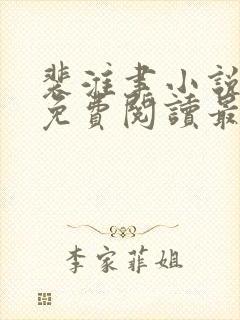 裴淮書小說
免費閱讀最
李家菲姐